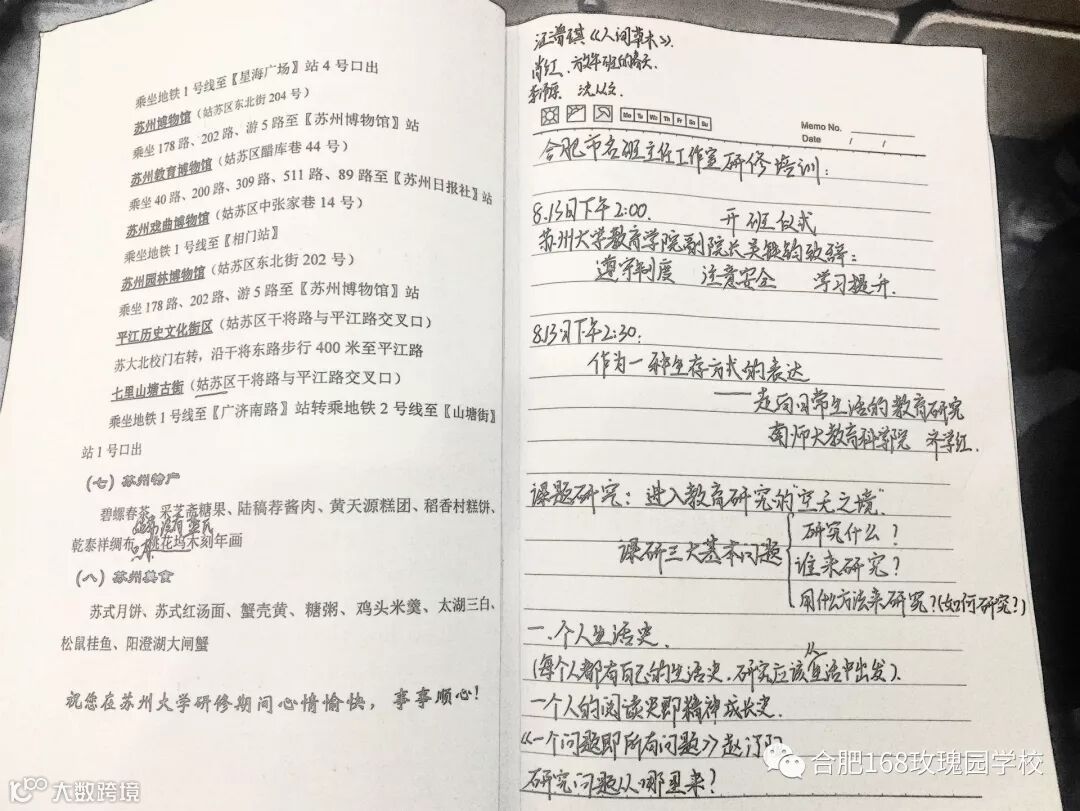 乘坐地铁1号线至〖星海广场〗站4号口出
苏州博物馆（姑苏区东北街204号）
乘坐178路、202路、游5路至〖苏州博物馆〗站
苏州教育博物馆（姑苏区醋库巷44号）
乘坐40路、200路、309路、511路、89路至〖苏州日报社〗站
苏州戏曲博物馆（姑苏区中张家巷14号）
乘坐地铁1号线至〖相门站〗
苏州园林博物馆（姑苏区东北街202号）
乘坐178路、202路、游5路至〖苏州博物馆〗站
平江历史文化街区（姑苏区干将路与平江路交叉口）
苏大北校门右转，沿干将东路步行400米至平江路
七里山塘古街（姑苏区干将路与平江路交叉口）
乘坐地铁1号线至〖广济南路〗站转乘地铁2号线至〖山塘街〗
站1号口出
（七）苏州特产
碧螺春茶、采芝斋糖果、陆稿荐酱肉、黄天源糕团、稻香村糕饼、
乾泰祥绸布、桃花坞木刻年画
（八）苏州美食
苏式月饼、苏式红汤面、蟹壳黄、糖粥、鸡头米羹、太湖三白、
松鼠桂鱼、阳澄湖大闸蟹
祝您在苏州大学研修期间心情愉快，事事顺心！
汪曾祺《人间草木》.
肖红. 的春天.
沈从文.
Mo Tu We Th Fr Sa Su
Memo No.
Date / /
合肥市名班主任工作室研修培训：
8.13日下午2:00. 开班仪式
苏州大学教育学院副院长吴铁钧致辞：
遵守制度 注意安全 学习提升.
8.13日下午2:30:
作为一种生存方式的表达
——走向日常生活的教育研究
南师大教育科学院 齐学红.
课题研究：进入教育研究的"空无之境"
课研三大基本问题
研究什么？
谁来研究？
用什么方法来研究？(如何研究？)
一.个人生活史.
(每个人都有自己的生活史.研究应该从生活中出发).
一个人的阅读史即精神成长史.
《一个问题即所有问题》赵汀阳
研究问题从哪里来？
合肥168玫瑰园学校
大数跨境